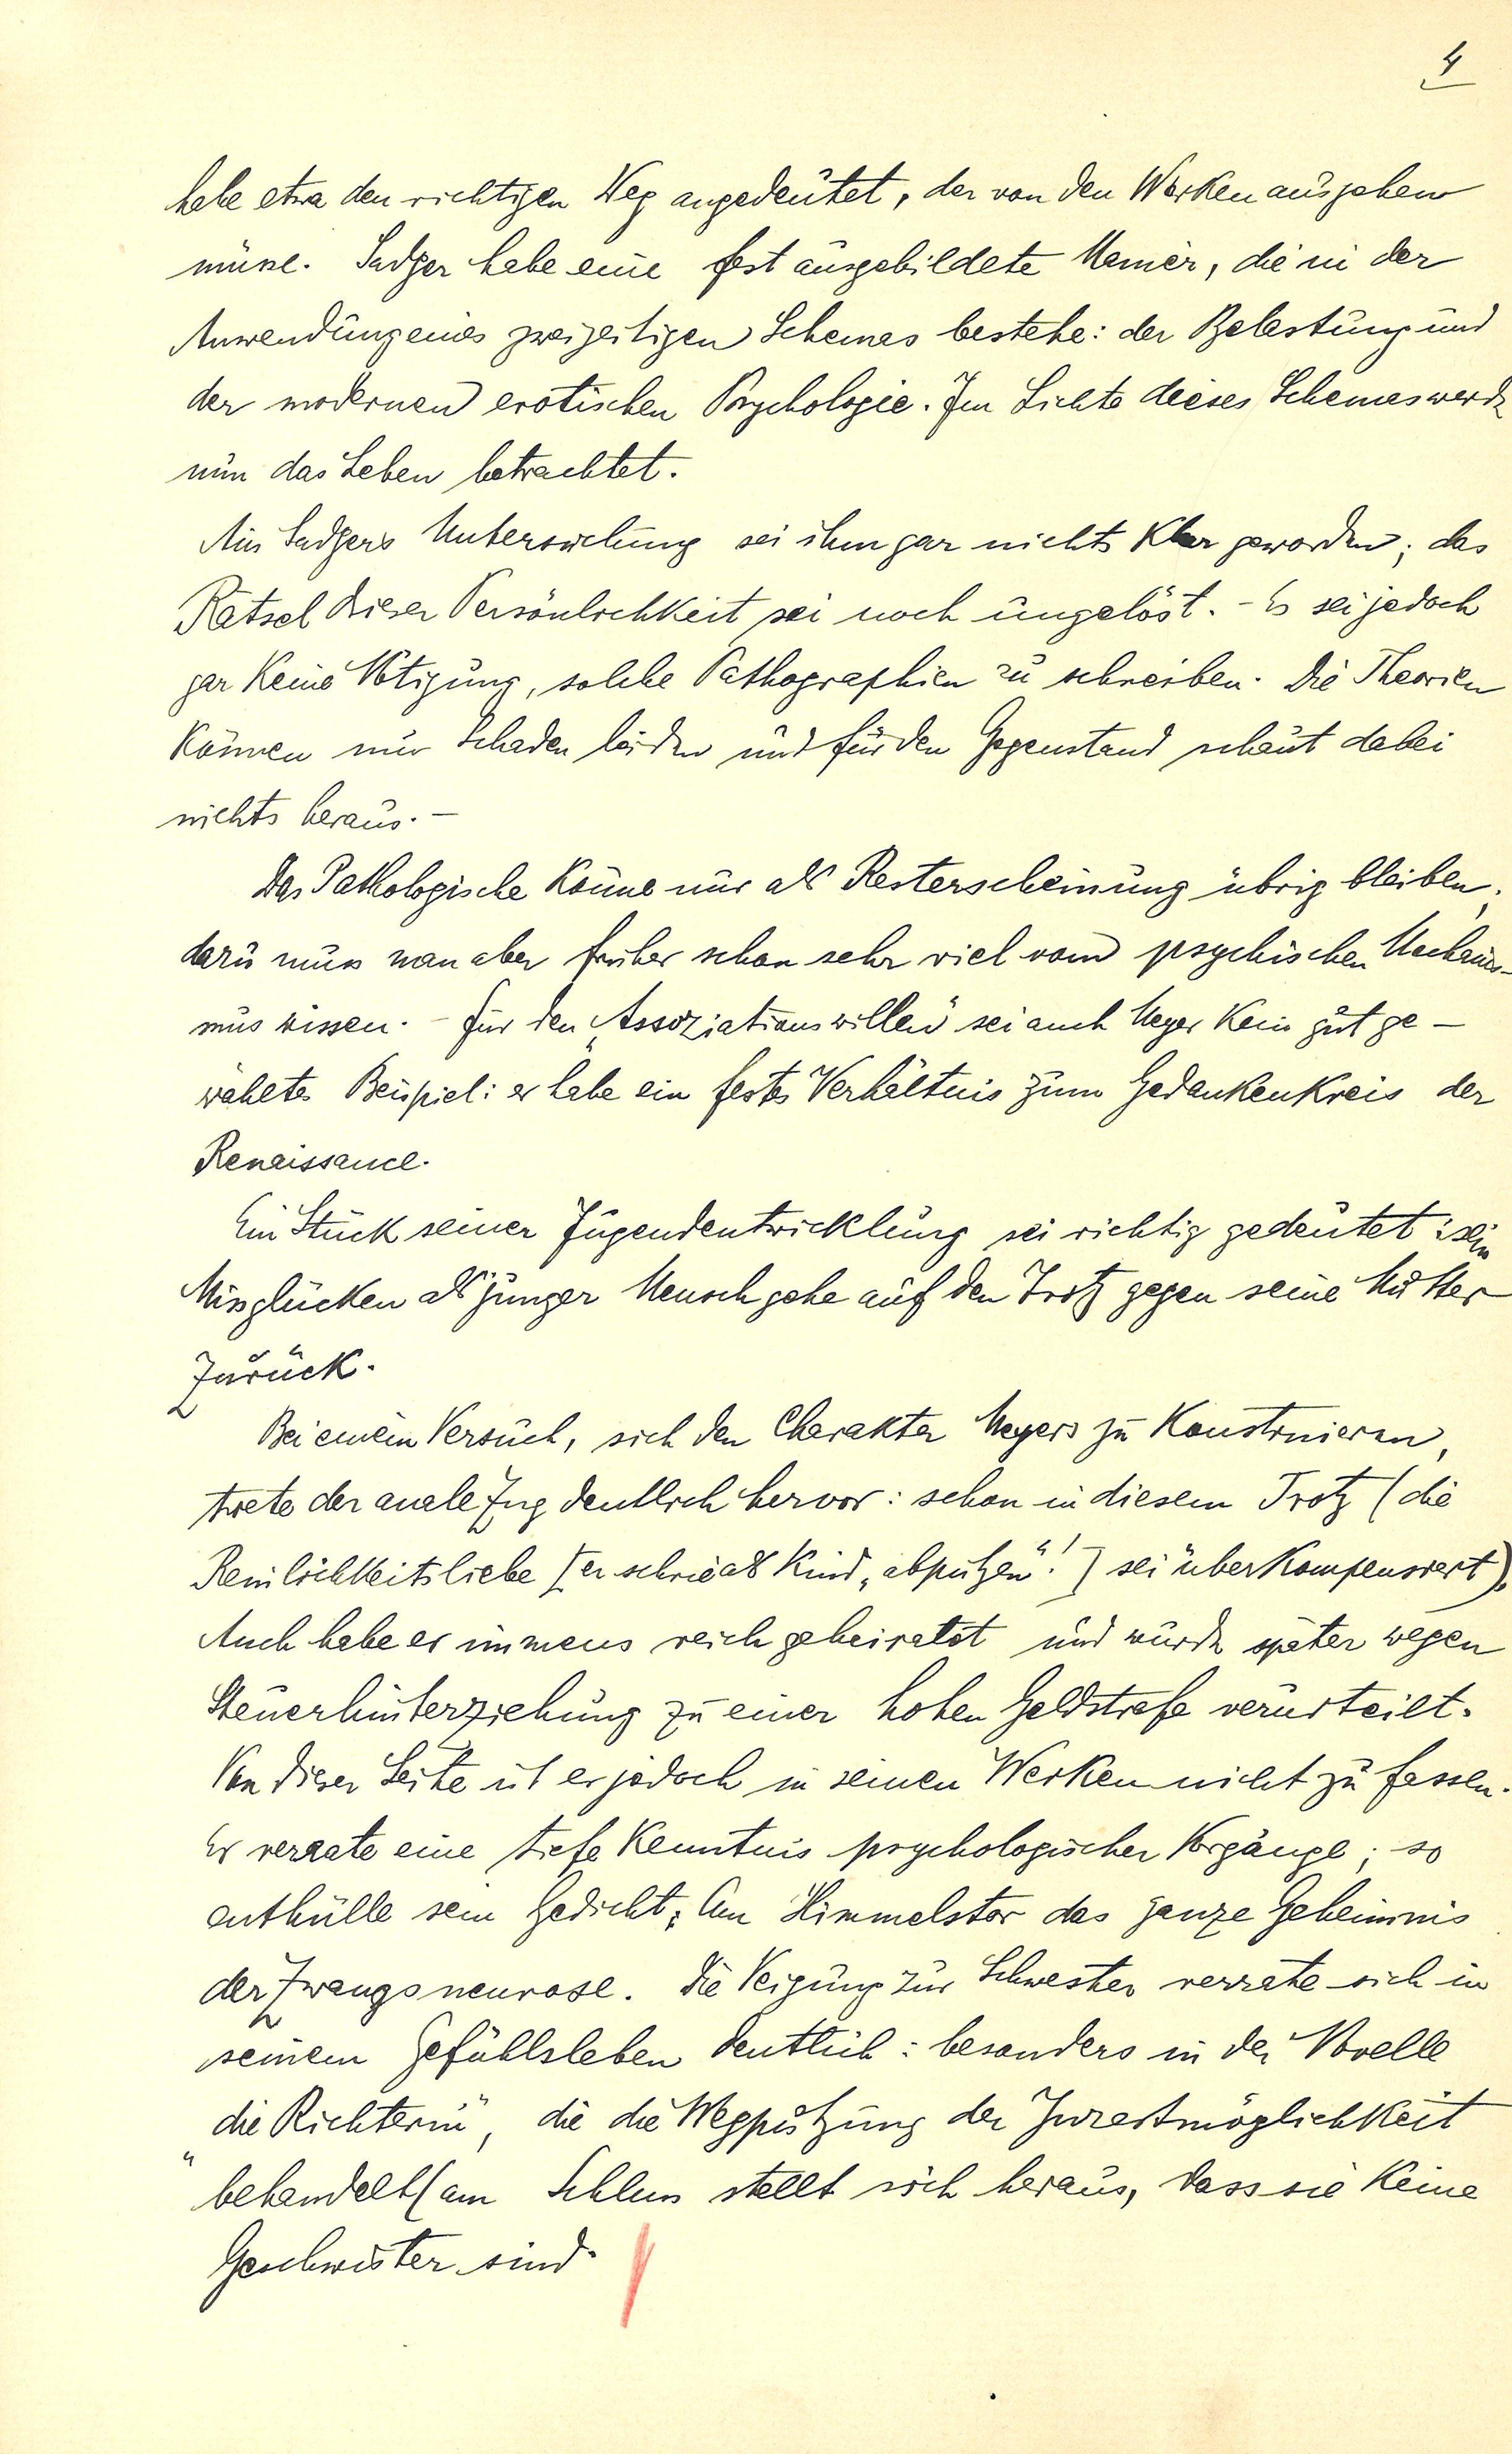 4
habe etwa den richtigen Weg angedeutet, der von den Werken ausgehen
müsse. Sadger habe eine fest ausgebildete Manier, die in der
Anwendung eines zweizeitigen Schemas bestehe: der Belastung und
der modernen erotischen Psychologie. Im Lichte dieses Schemas werde
nun das Leben betrachtet.
Aus Sadgers Untersuchung sei ihm gar nichts klar geworden; das
Rätsel dieser Persönlichkeit sei noch ungelöst. - Es sei jedoch
gar keine Nötigung, solche Pathographien zu schreiben. Die Theorien
können nur Schaden leiden und für den Gegenstand schaut dabei
nichts heraus. -
Das Pathologische könne nur als Resterscheinung übrig bleiben;
dazu muss man aber früher schon sehr viel vom psychischen Mechanis-
mus wissen. - Für den „Assoziationswillen" sei auch Meyer kein gut ge-
wähltes Beispiel: er habe ein festes Verhältnis zum Gedankenkreis der
Renaissance.
Ein Stück seiner Jugendentwicklung sei richtig gedeutet: sein
Missglücken als junger Mensch gehe auf den Trotz gegen seine Mutter
zurück.
Bei einem Versuch, sich den Charakter Meyers zu konstruieren,
trete der anale Zug deutlich hervor: schon in diesem Trotz (die
Reinlichkeitsliebe [er schrie als Kind „abputzen"!] sei überkompensiert).
Auch habe er immens reich geheiratet und wurde später wegen
Steuerhinterziehung zu einer hohen Geldstrafe verurteilt.
Von dieser Seite ist er jedoch in seinen Werken nicht zu fassen.
Er verrate eine tiefe Kenntnis psychologischer Vorgänge; so
enthülle sein Gedicht: Am Himmelstor das ganze Geheimnis
der Zwangsneurose. Die Neigung zur Schwester verrate sich in
seinem Gefühlsleben deutlich: besonders in der Novelle
„die Richterin", die die Wegputzung der Inzestmöglichkeit
behandelt (am Schluss stellt sich heraus, dass sie keine
Geschwister sind.